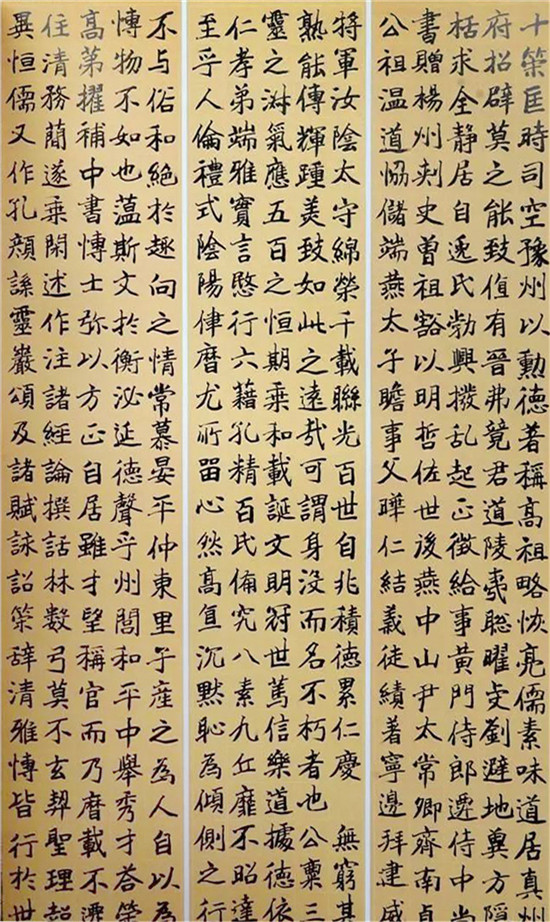 十策匡時司空豫州以勳德著稱高祖略恢亮儒素味道居真州
府招辟莫之能致值有晉弗竟君道陵夷聡曜虔劉避地冀方隱
括求全静居自逸民勃興撥乱起正徵給事黄門侍郎遷侍中尚
書贈楊州刾史曾祖豁以明哲佐世後燕中山尹太常卿齊南貞
公祖温道恊儲端燕太子瞻事父曄仁結義徒績著寧邊拜建威
將軍汝陰太守綿榮千載聯光百世自非積德累仁慶 無窮其
熟能傳輝踵美致如此之遠哉可謂身没而名不朽者也公禀三
靈之淋氣應五百之恒期乗和載誕文明冠世篤信樂道據德依
仁孝弟端雅實言慜行六藉孔精百氏備究八素九丘靡不昭達
至乎人倫禮式陰陽律曆尤所留心然高直沉默恥為傾側之行
不与俗和絶於趣向之情常慕晏平仲東里子産之為人自以為
博物不如也藴斯文於衡泌延德聲乎州閭和平中舉秀才荅策
高第擢補中書博士弥以方正自居雖才望稱官而乃曆載不遷
任清務蕳遂乗閑述作注諸經論撰話林數弓莫不玄契聖理超
異恒儒又作孔顔誄靈巖頌及諸賦詠詔策辭清雅博皆行於世